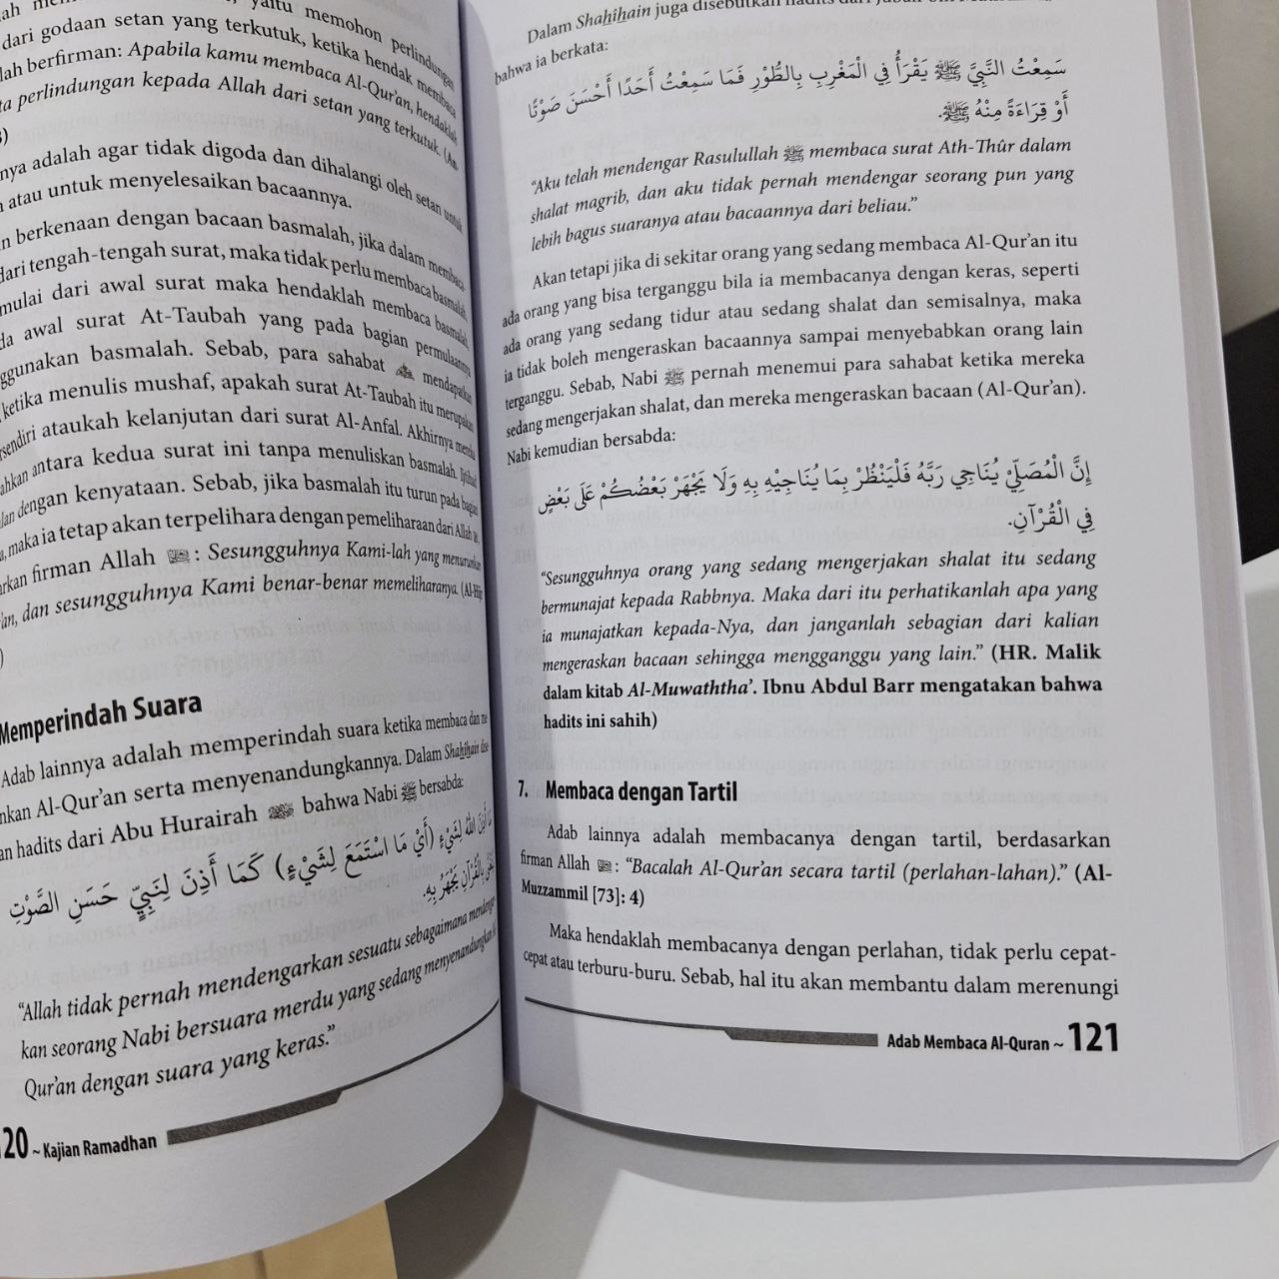 dari godaan setan yang terkutuk, ketika hendak membaca
lah berfirman: Apabila kamu membaca Al-Qur'an, hendaklah
ta perlindungan kepada Allah dari setan yang terkutuk. (An-
nya adalah agar tidak digoda dan dihalangi oleh setan untuk
atau untuk menyelesaikan bacaannya.
n berkenaan dengan bacaan basmalah, jika dalam membaca
dari tengah-tengah surat, maka tidak perlu membaca basmalah,
mulai dari awal surat maka hendaklah membaca basmalah,
da awal surat At-Taubah yang pada bagian permulaannya
ggunakan basmalah. Sebab, para sahabat mendapatkan
ketika menulis mushaf, apakah surat At-Taubah itu merupakan
rsendiri ataukah kelanjutan dari surat Al-Anfal. Akhirnya
ahkan antara kedua surat ini tanpa menuliskan basmalah. Ijtihad
lan dengan kenyataan. Sebab, jika basmalah itu turun pada bagian
a, maka ia tetap akan terpelihara dengan pemeliharaan dari Allah
arkan firman Allah ﷻ: Sesungguhnya Kami-lah yang menurunkan
'an, dan sesungguhnya Kami benar-benar memeliharanya. (Al-Hijr
)
Memperindah Suara
Adab lainnya adalah memperindah suara ketika membaca dan me
nkan Al-Qur'an serta menyenandungkannya. Dalam Shahihain dise
an hadits dari Abu Hurairah bahwa Nabi ﷺ bersabda:
مَا أَذِنَ اللهُ لِشَيْءٍ (أَيْ مَا اسْتَمَعَ لِشَيْءٍ) كَمَا أَذِنَ لِنَبِيٍّ حَسَنِ الصَّوْتِ
بِالْقُرْآنِ يَجْهَرُ بِهِ.
“Allah tidak pernah mendengarkan sesuatu sebagaimana mendengar
kan seorang Nabi bersuara merdu yang sedang menyenandungkan
Qur'an dengan suara yang keras.”
20 ~ Kajian Ramadhan
Dalam Shahihain juga disebutkan hadits dari
bahwa ia berkata:
سَمِعْتُ النَّبِيَّ ﷺ يَقْرَأُ فِي الْمَغْرِبِ بِالطُّوْرِ فَمَا سَمِعْتُ أَحَدًا أَحْسَنَ صَوْتًا
أَوْ قِرَاءَةً مِنْهُ ﷺ.
“Aku telah mendengar Rasulullah ﷺ membaca surat Ath-Thûr dalam
shalat magrib, dan aku tidak pernah mendengar seorang pun yang
lebih bagus suaranya atau bacaannya dari beliau.”
Akan tetapi jika di sekitar orang yang sedang membaca Al-Qur'an itu
ada orang yang bisa terganggu bila ia membacanya dengan keras, seperti
ada orang yang sedang tidur atau sedang shalat dan semisalnya, maka
ia tidak boleh mengeraskan bacaannya sampai menyebabkan orang lain
terganggu. Sebab, Nabi ﷺ pernah menemui para sahabat ketika mereka
sedang mengerjakan shalat, dan mereka mengeraskan bacaan (Al-Qur'an).
Nabi kemudian bersabda:
إِنَّ الْمُصَلِّيْ يُنَاجِي رَبَّهُ فَلْيَنْظُرْ بِمَا يُنَاجِيْهِ بِهِ وَلَا يَجْهَرْ بَعْضُكُمْ عَلَى بَعْضٍ
فِي الْقُرْآنِ.
“Sesungguhnya orang yang sedang mengerjakan shalat itu sedang
bermunajat kepada Rabbnya. Maka dari itu perhatikanlah apa yang
ia munajatkan kepada-Nya, dan janganlah sebagian dari kalian
mengeraskan bacaan sehingga mengganggu yang lain.” (HR. Malik
dalam kitab Al-Muwaththa'. Ibnu Abdul Barr mengatakan bahwa
hadits ini sahih)
7. Membaca dengan Tartil
Adab lainnya adalah membacanya dengan tartil, berdasarkan
firman Allah ﷻ: “Bacalah Al-Qur'an secara tartil (perlahan-lahan).” (Al-
Muzzammil [73]: 4)
Maka hendaklah membacanya dengan perlahan, tidak perlu cepat-
cepat atau terburu-buru. Sebab, hal itu akan membantu dalam merenungi
Adab Membaca Al-Quran ~ 121